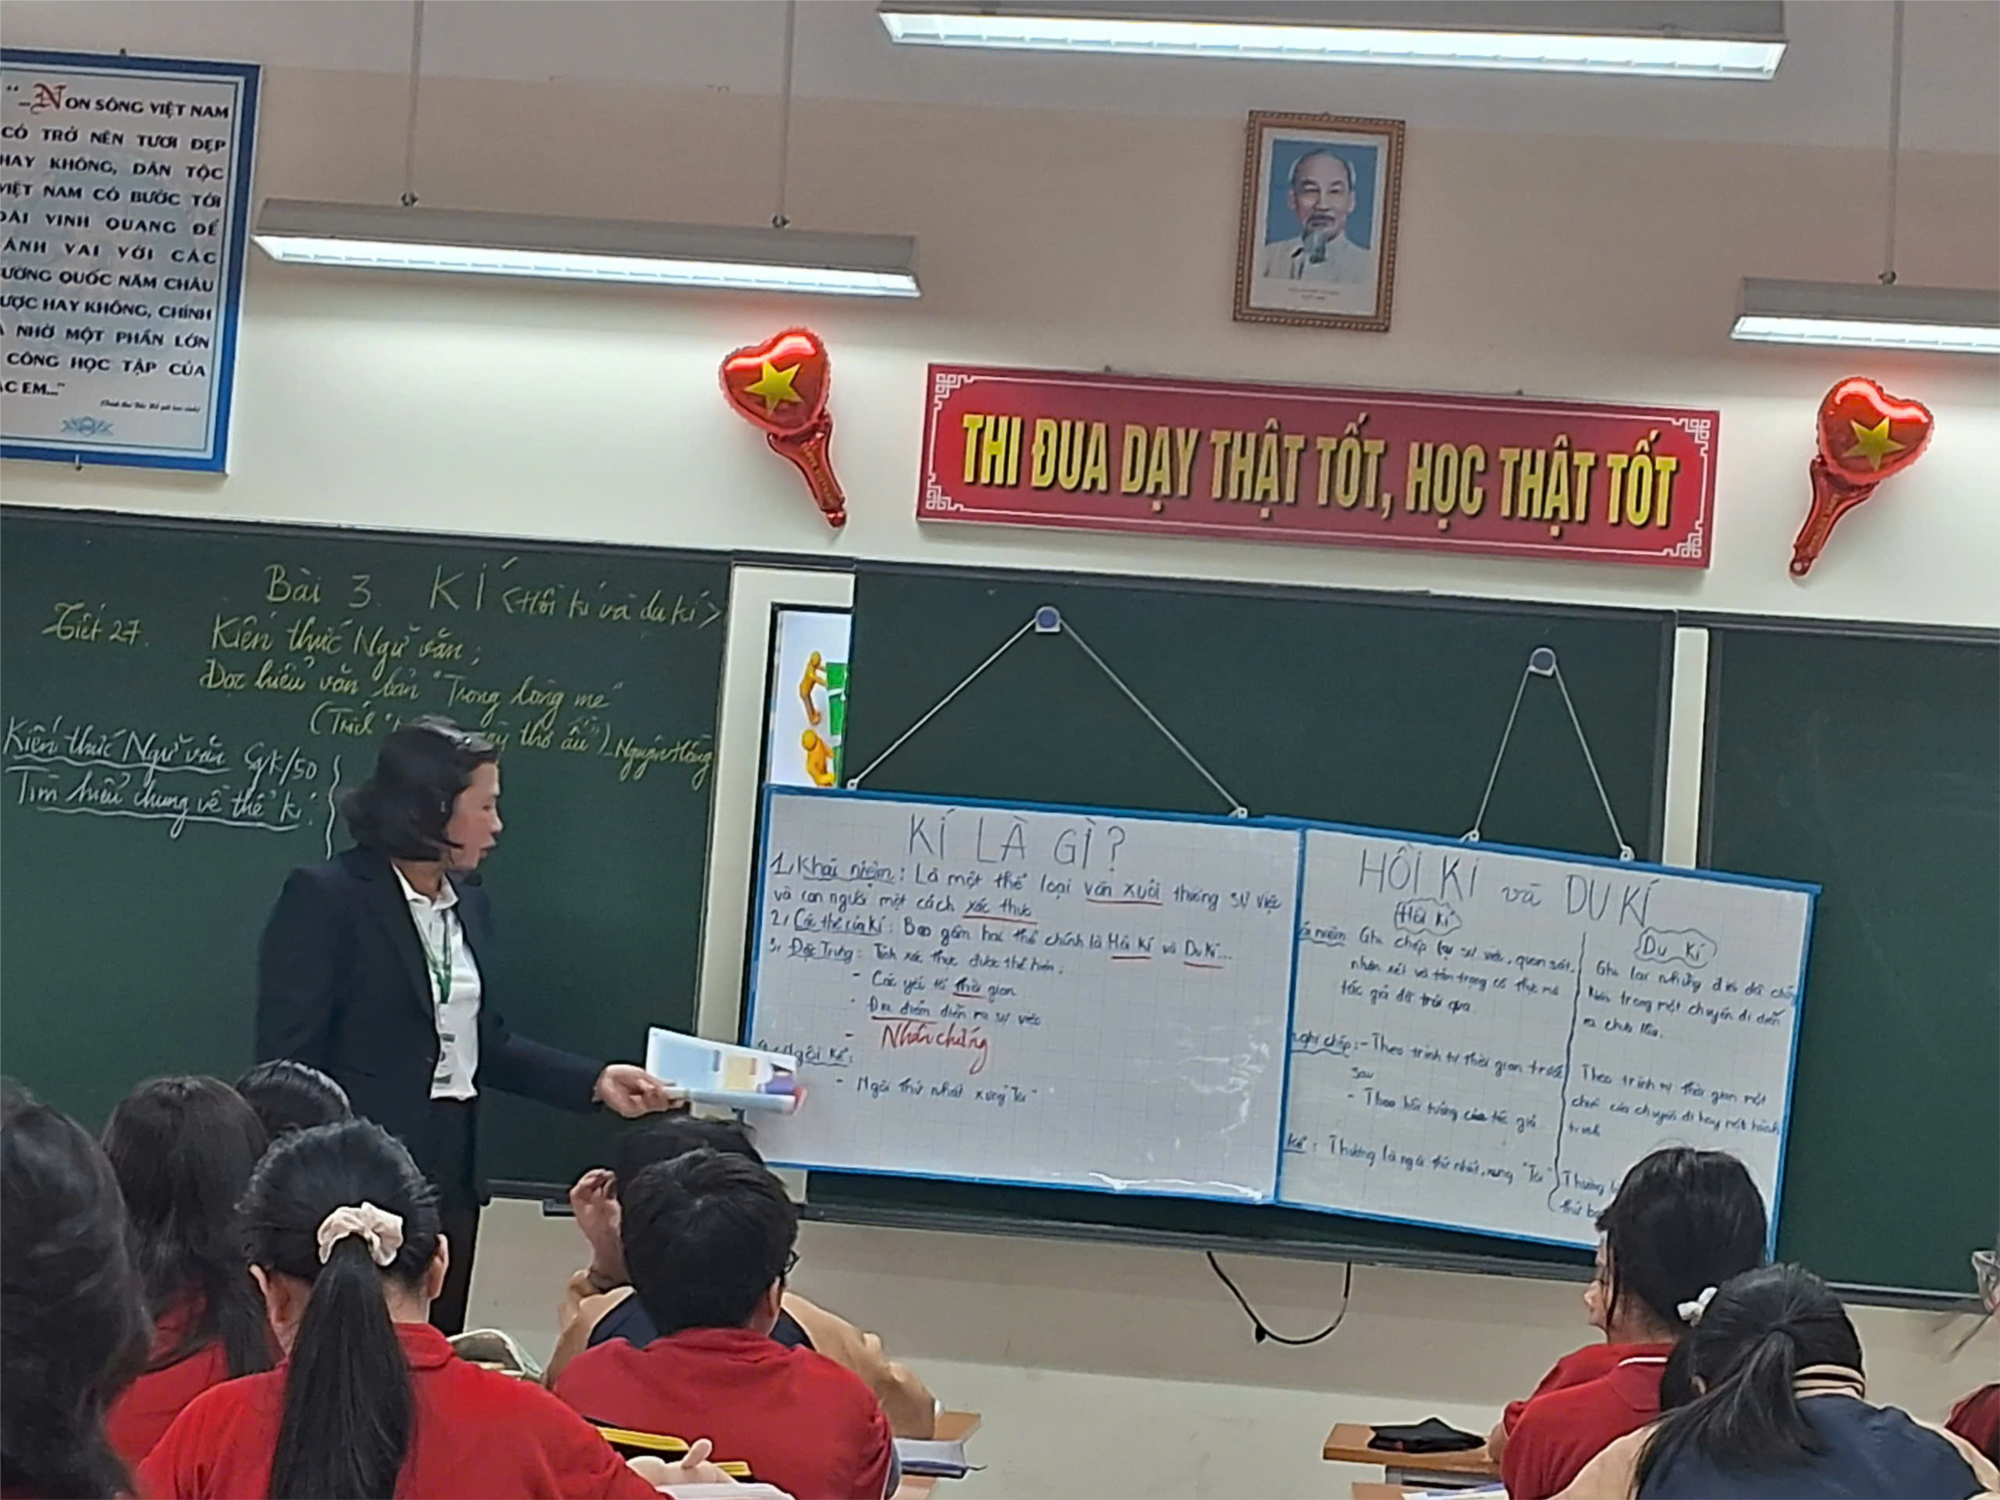 "...NON SÔNG VIỆT NAM
CÓ TRỞ NÊN TƯƠI ĐẸP
HAY KHÔNG, DÂN TỘC
VIỆT NAM CÓ BƯỚC TỚI
ĐÀI VINH QUANG ĐỂ
ÁNH VAI VỚI CÁC
ƯỜNG QUỐC NĂM CHÂU
ƯỢC HAY KHÔNG, CHÍNH
NHỜ MỘT PHẦN LỚN
CÔNG HỌC TẬP CỦA
ÁC EM..."
THI ĐUA DẠY THẬT TỐT, HỌC THẬT TỐT
Bài 3. KÍ <Hồi kí và du kí>
Tiết 27. Kiến thức Ngữ văn;
Đọc hiểu văn bản "Trong lòng mẹ"
(Trích thơ ấu") - Nguyên Hồng
Kiến thức Ngữ văn SgK/50
Tìm hiểu chung về thể kí.
KÍ LÀ GÌ?
1, Khái niệm: Là một thể loại văn xuôi thường sự việc
và con người một cách xác thực
2, Các thể của kí: Bao gồm hai thể chính là Hồi Kí và Du Kí...
3, Đặc Trưng: Tính xác thực được thể hiện:
- Các yếu tố thời gian
- Địa điểm diễn ra sự việc
- Nhân chứng
Ngôi kể:
- Ngôi thứ nhất xưng "Tôi"
HỒI KÍ và DU KÍ
Hồi kí
niệm Ghi chép sự việc, quan sát,
nhận xét và tâm trạng có thực mà
tác giả đã trải qua.
ghi chép: - Theo trình tự thời gian trước
sau
- Theo hồi tưởng của tác giả
kể: Thường là ngôi thứ nhất, xưng "Tôi"
Du Kí
Ghi lại những điều đã chứng
kiến trong một chuyến đi diễn
ra chưa lâu.
Theo trình tự thời gian một
của chuyến đi hay một hành
trình
Thường
thứ